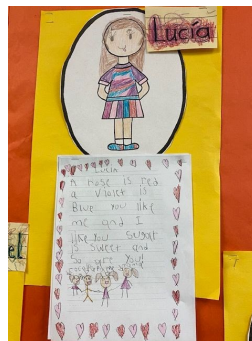 Lucía
Lucía
A Rose is red
a Violet is
Blue you like
me and I
like you Sugar
is sweet and
so are you
el